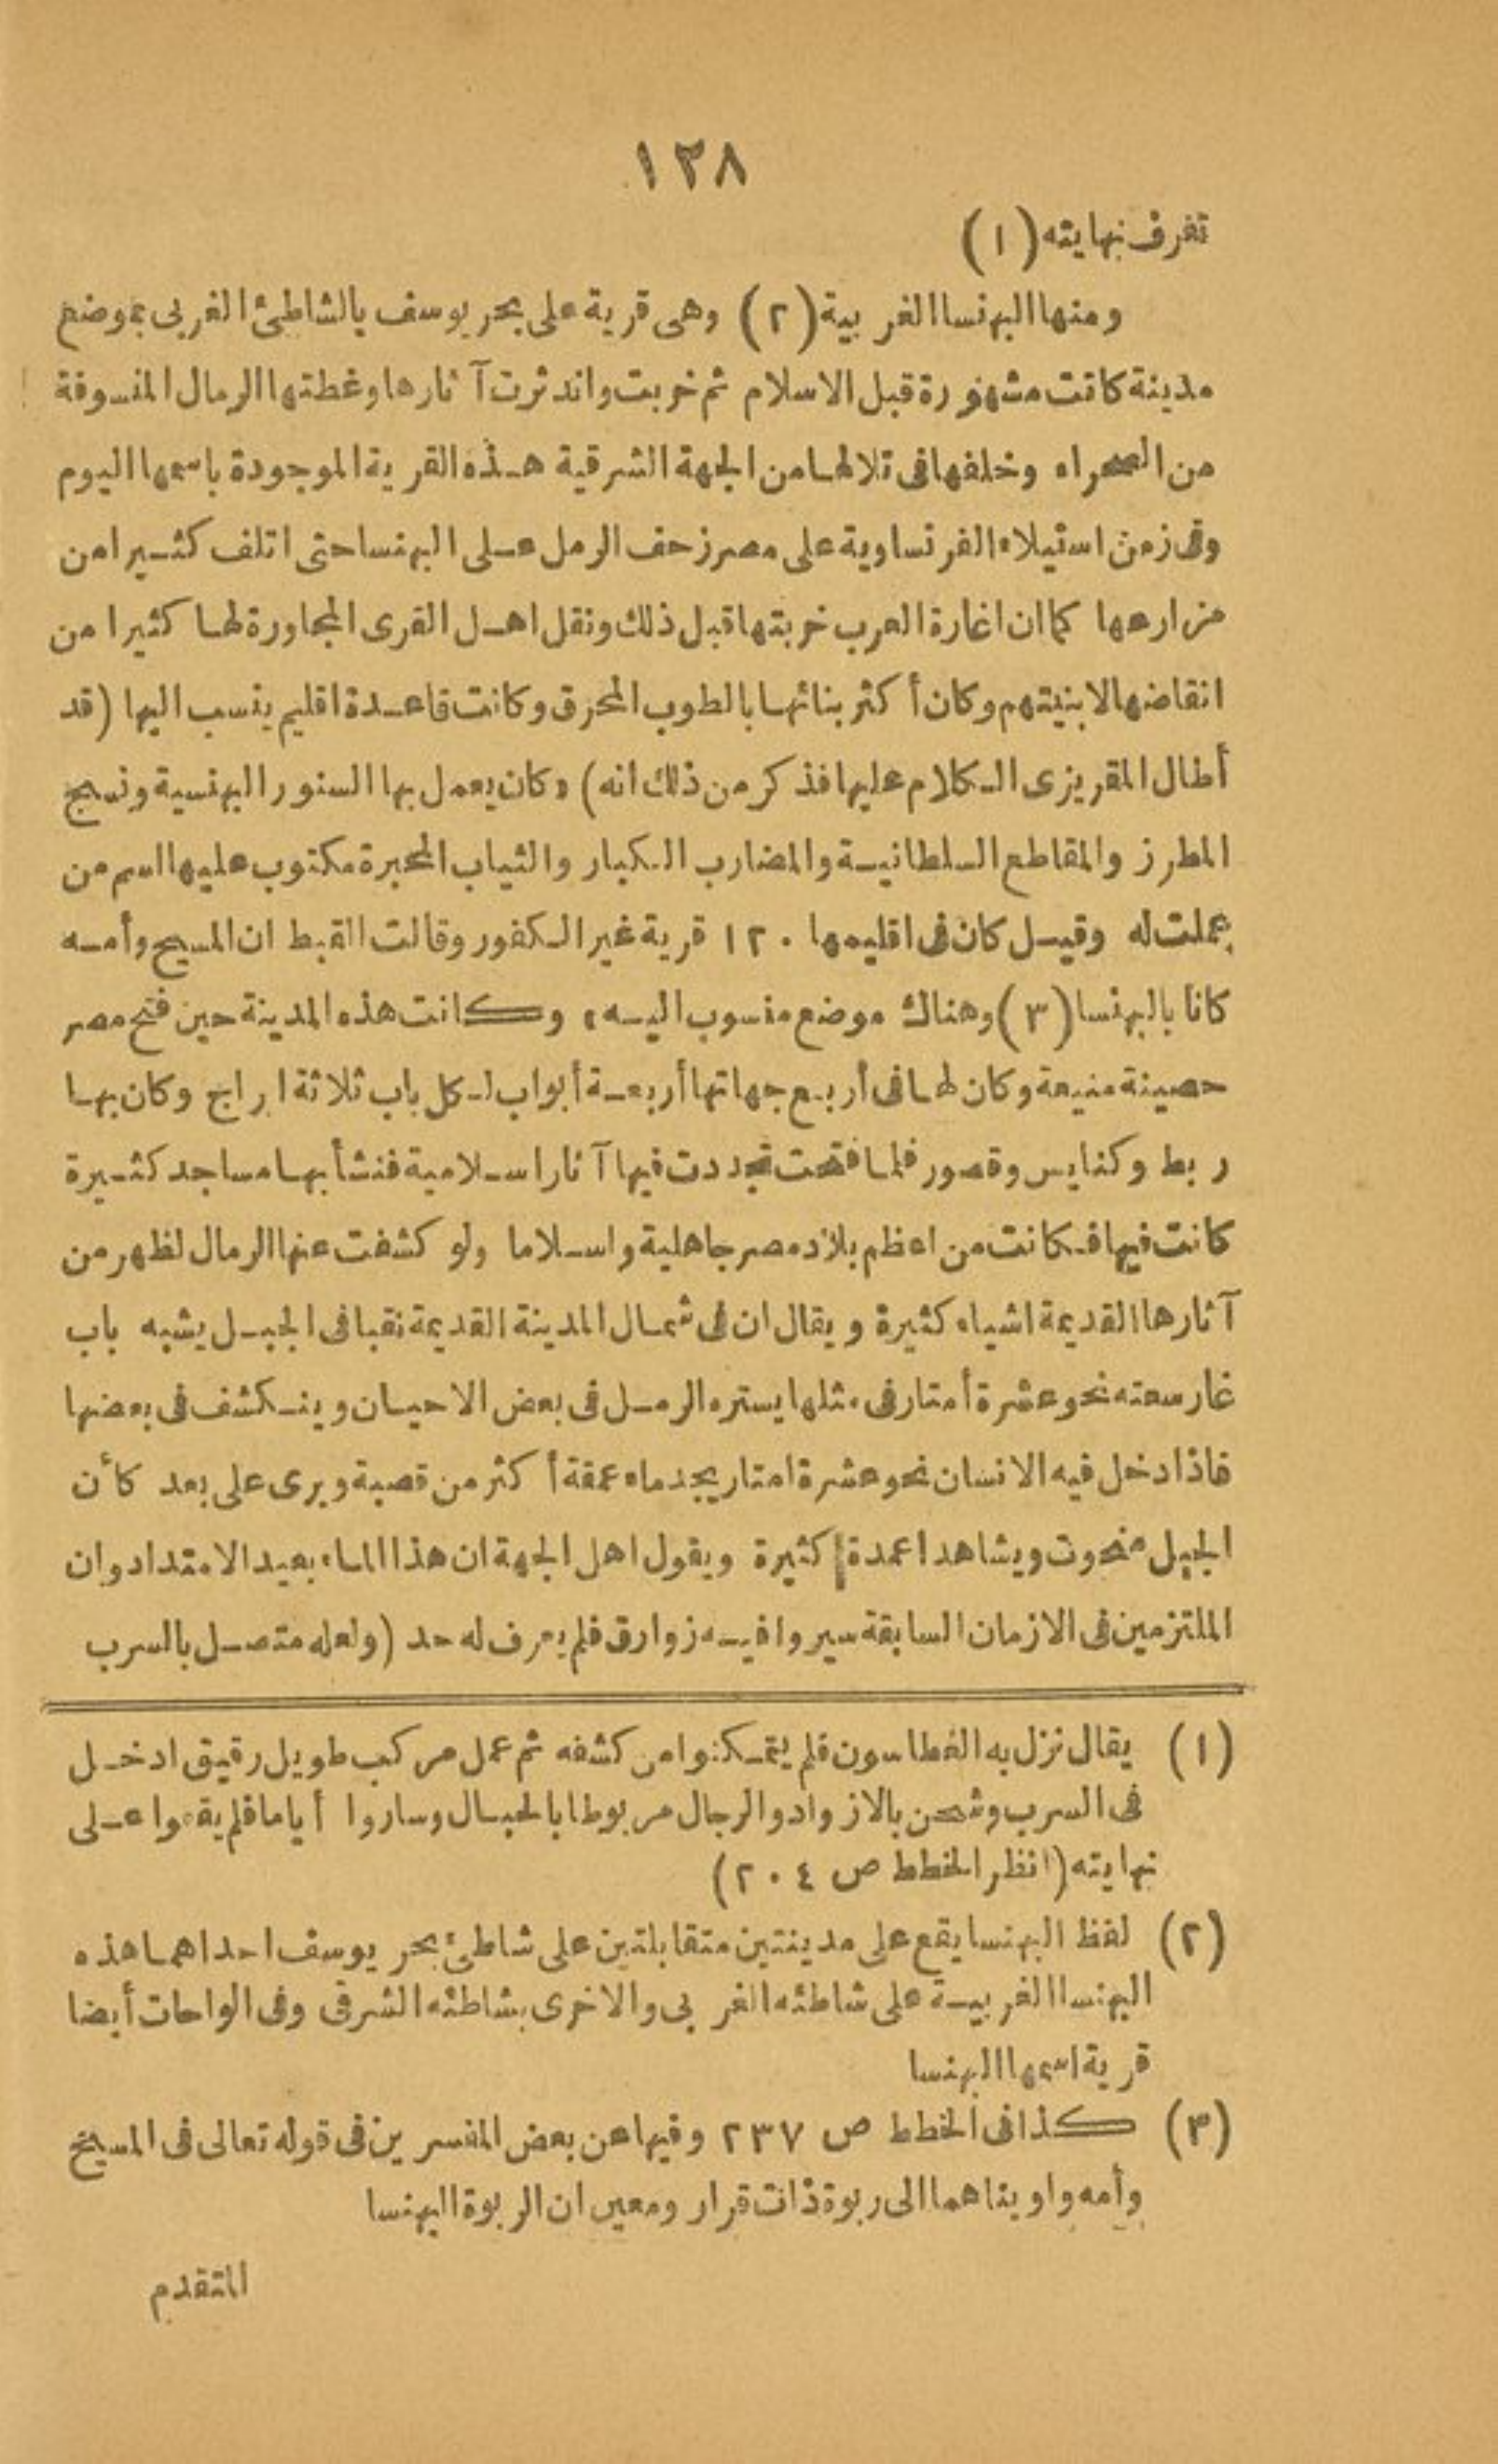 ١٢٨
تعرف نهايته (١)
ومنها البهنسا الغربية (٢) وهى قرية على بحر يوسف بالشاطئ الغربى بموضع
مدينة كانت مشهورة قبل الاسلام ثم خربت واندثرت آثارها وغطتها الرمال المنسوفة
من الصحراء وخلفها فى تلالها من الجهة الشرقية هذه القرية الموجودة باسمها اليوم
وفى زمن استيلاء الفرنساوية على مصر زحف الرمل على البهنسا حتى اتلف كثيرا من
مزارعها كما ان اغارة العرب خربتها قبل ذلك ونقل اهل القرى المجاورة لها كثيرا من
انقاضها لابنيتهم وكان أكثر بنائها بالطوب المحرق وكانت قاعدة اقليم ينسب اليها (قد
أطال المقريزى الكلام عليها فذكر من ذلك انه) «كان يعمل بها الستور البهنسية ونسيج
المطرز والمقاطع السلطانية والمضارب الكبار والثياب المحبرة مكتوب عليها اسم من
عملت له وقيل كان فى اقليمها ١٢٠ قرية غير الكفور وقالت القبط ان المسيح وأمه
كانا بالبهنسا (٣) وهناك موضع منسوب اليه» وكانت هذه المدينة حين فتح مصر
حصينة منيعة وكان لها فى أربع جهاتها أربعة أبواب لكل باب ثلاثة ابراج وكان بها
ربط وكنايس وقصور فلما فتحت تجددت فيها آثار اسلامية فنشأ بها مساجد كثيرة
كانت فيها فكانت من اعظم بلاد مصر جاهلية واسلاما ولو كشفت عنها الرمال لظهر من
آثارها القديمة اشياء كثيرة ويقال ان فى شمال المدينة القديمة نقبا فى الجبل يشبه باب
غار سعته نحو عشرة أمتار فى مثلها يستره الرمل فى بعض الاحيان وينكشف فى بعضها
فاذا دخل فيه الانسان نحو عشرة امتار يجد ماء عمقة أكثر من قصبة ويرى على بعد كأن
الجبل منحوت ويشاهد اعمدة كثيرة ويقول اهل الجهة ان هذا الماء بعيد الامتداد وان
الملتزمين فى الازمان السابقة سيروا فيه زوارق فلم يعرف له حد (ولعله متصل بالسرب
(١) يقال نزل به الغطاسون فلم يتمكنوا من كشفه ثم عمل مركب طويل رقيق ادخل
فى السرب وشحن بالازواد والرجال مربوطا بالحبال وساروا أياما فلم يقفوا على
نهايته (انظر الخطط ص ٢٠٤)
(٢) لفظ البهنسا يقع على مدينتين متقابلتين على شاطئ بحر يوسف احداهما هذه
البهنسا الغربية على شاطئه الغربى والاخرى بشاطئه الشرقى وفى الواحات أيضا
قرية اسمها البهنسا
(٣) كذا فى الخطط ص ٢٣٧ وفيها عن بعض المفسرين فى قوله تعالى فى المسيح
وأمه واويناهما الى ربوة ذات قرار ومعين ان الربوة البهنسا
المتقدم